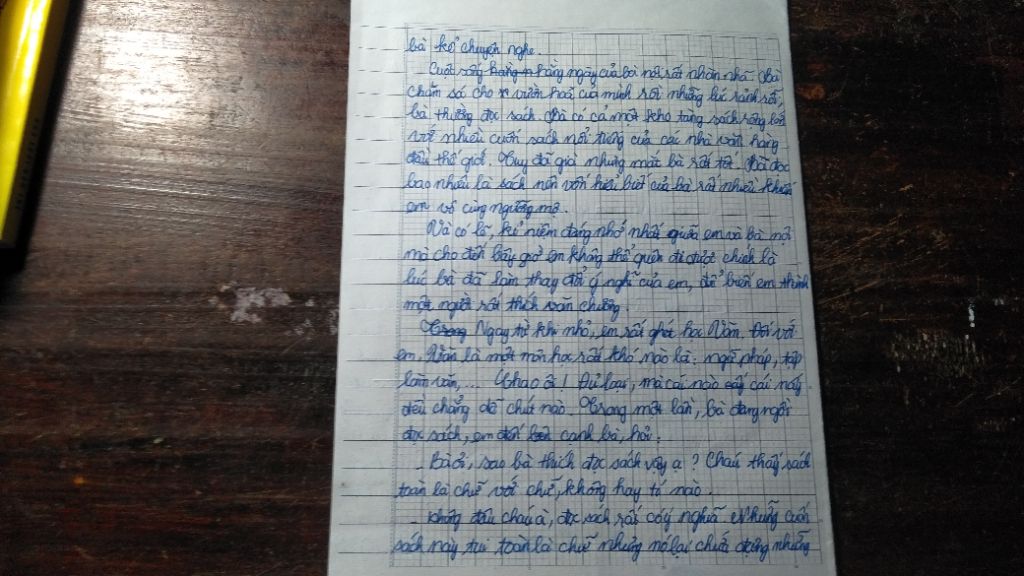 bà kể chuyện nghe.
Cuộc sống hàng ngày của bà nội rất nhàn nhã. Bà
chăm sóc cho vườn hoa của mình rồi những lúc rảnh rỗi,
bà thường đọc sách. Bà có cả một kho tàng sách rộng lớn
với nhiều cuốn sách nổi tiếng của các nhà văn hàng
đầu thế giới. Tuy đã già nhưng mắt bà rất tốt. Bà đọc
bao nhiêu là sách nên vốn hiểu biết của bà rất nhiều khiến
em vô cùng ngưỡng mộ.
Và có lẽ, kỉ niệm đáng nhớ nhất giữa em và bà nội
mà cho đến bây giờ em không thể quên đi được chính là
lúc bà đã làm thay đổi ý nghĩ của em, để biến em thành
một người rất thích văn chương.
Ngay từ khi nhỏ, em rất ghét học Văn. Đối với
em, Văn là một môn học rất khó nào là: ngữ pháp, tập
làm văn,... Chao ôi! Đủ loại, mà cái nào cái nấy
đều chẳng dễ chút nào. Trong một lần, bà đang ngồi
đọc sách, em đến cạnh bà, hỏi:
- Bà ơi, sao bà thích đọc sách vậy ạ? Cháu thấy sách
toàn là chữ với chữ, không hay tí nào.
- Không đâu cháu à, đọc sách rất có ý nghĩa. Những cuốn
sách này tuy toàn là chữ nhưng nó lại chứa đựng những